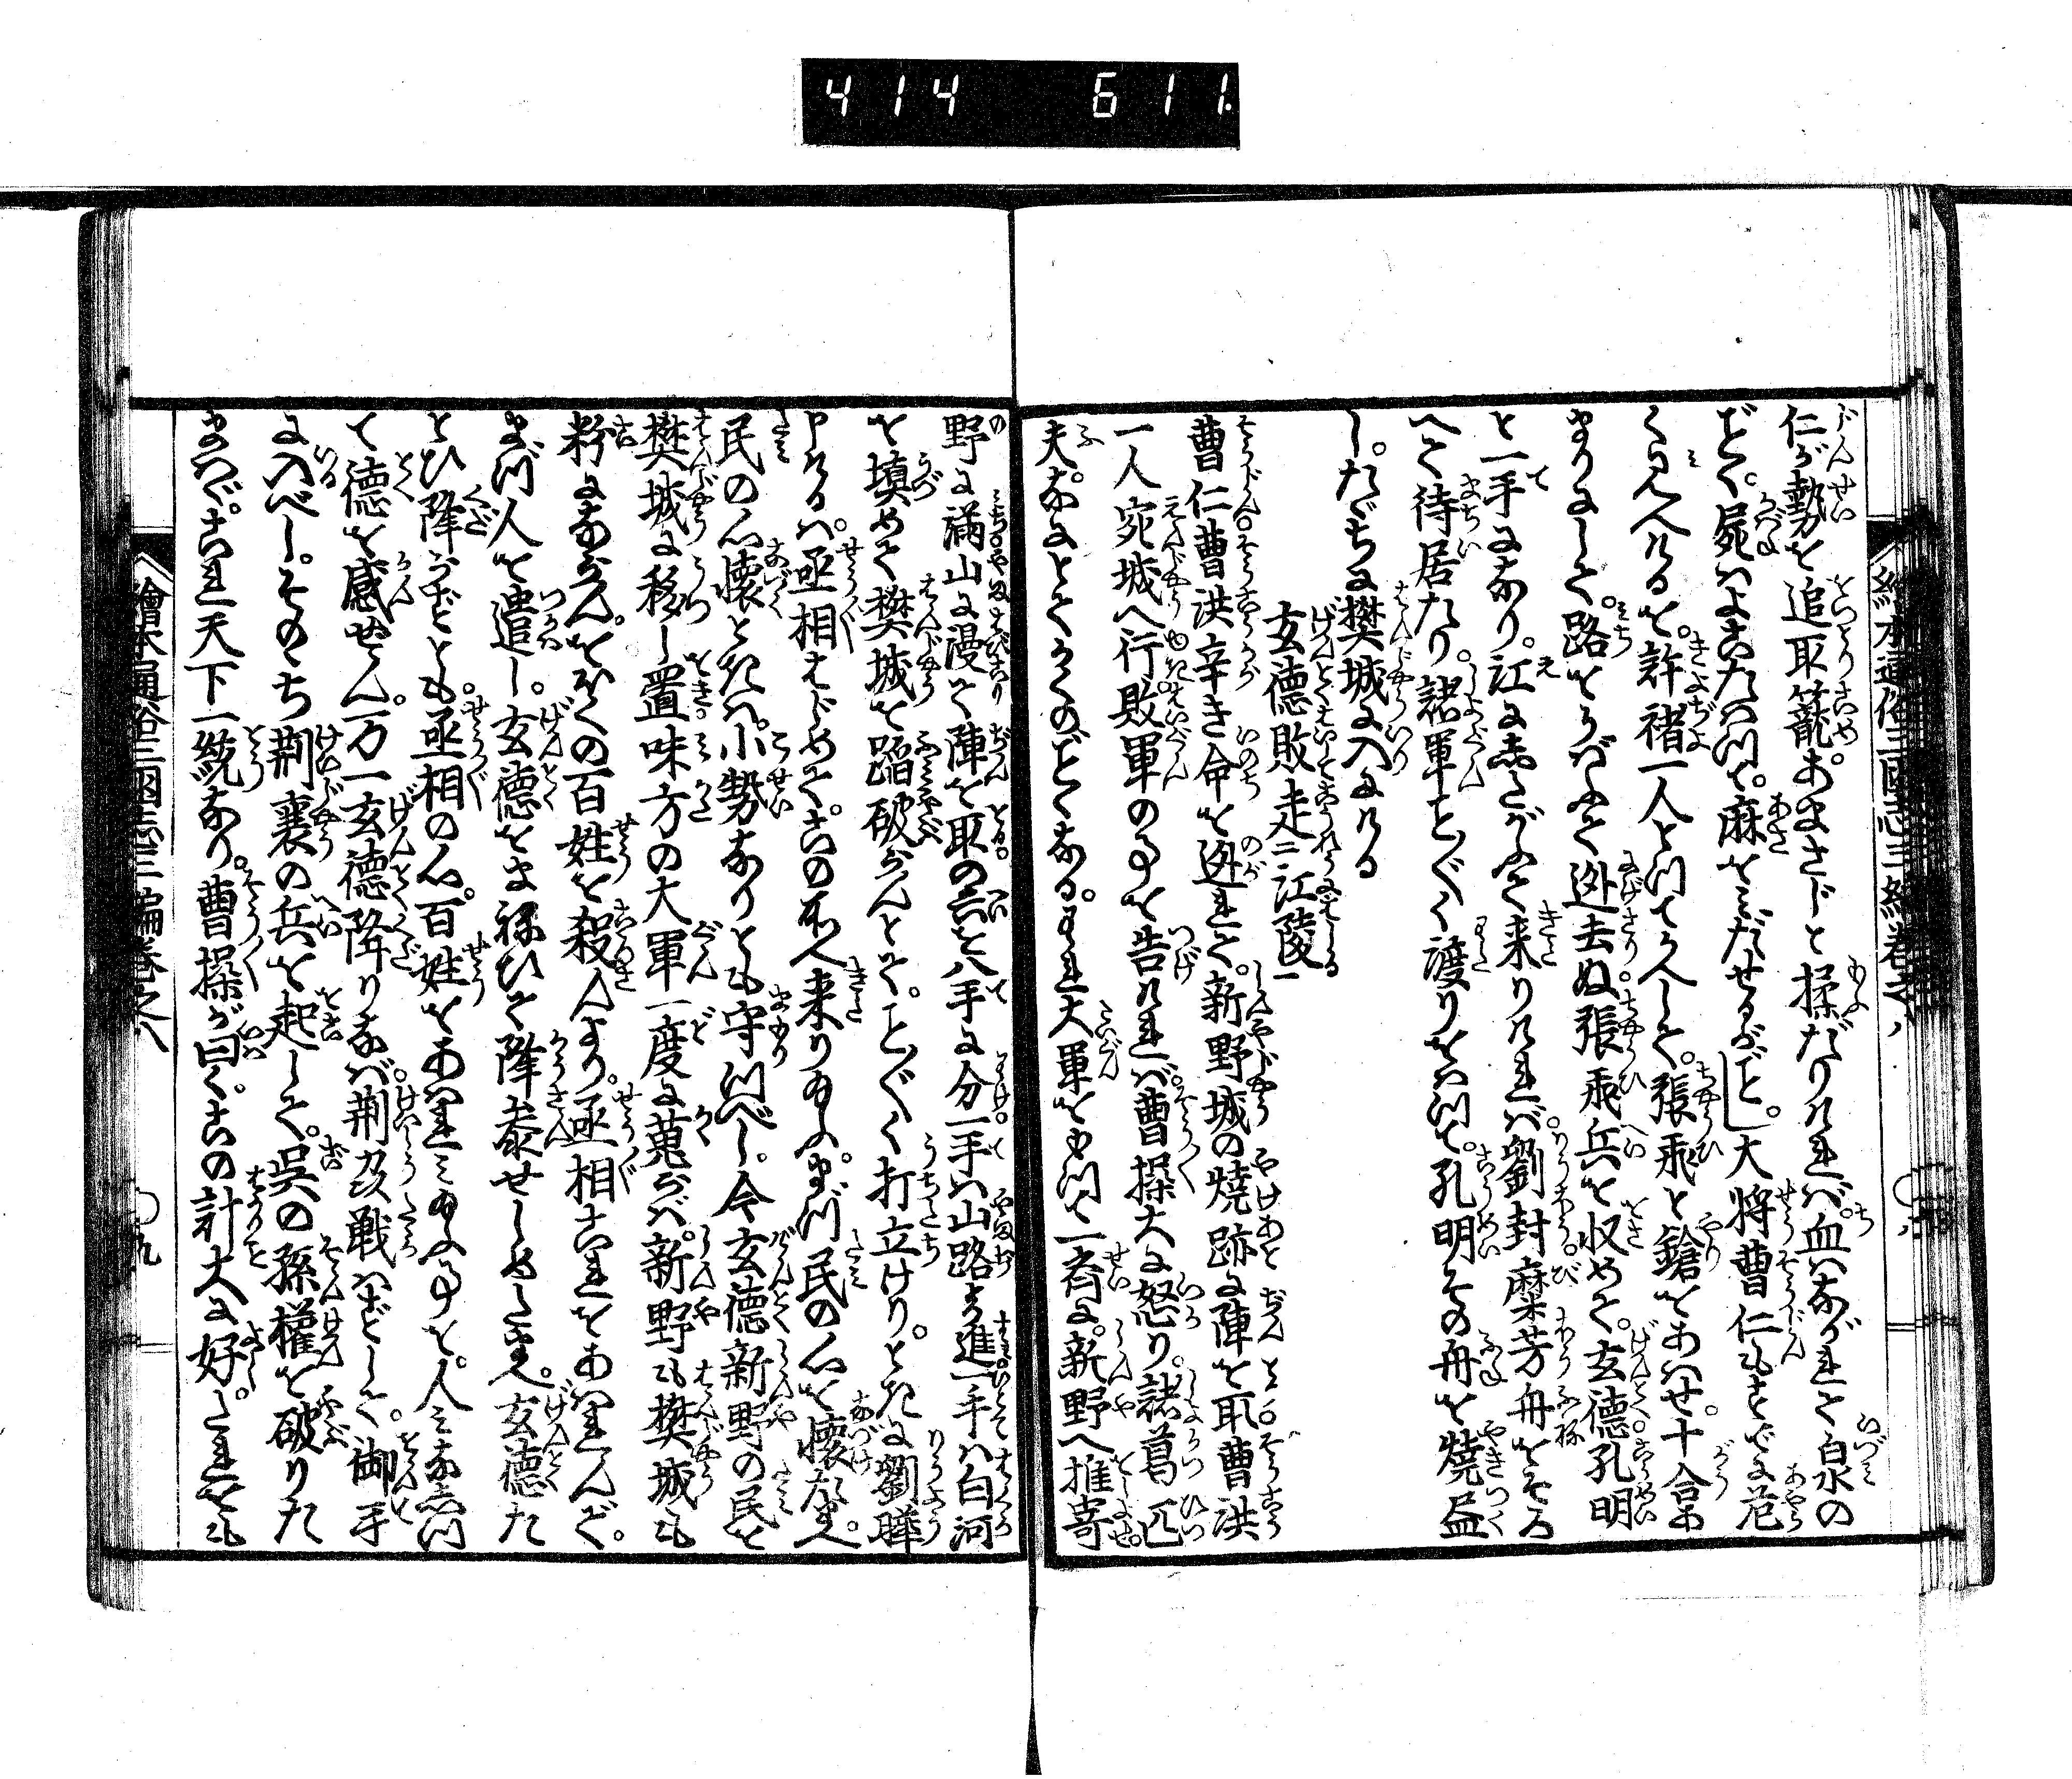 414 611.
繪本通俗三國志三編卷之八
仁が勢を追取籠。あまさじと揉だりければ。血はながれて白泉の
ごとく。屍はよこたはつて。麻をみだせるがごとし。大将曹仁もすでに危
く見へけるを。許褚一人とつてかへして。張飛と鎗をあはせ。十合ばか
まりにして。路をうばふて迯去ぬ張飛兵を収めて。玄徳孔明
と一手になり。江にしたがふて来りければ。劉封糜芳舟をそろ
へて待居たり。諸軍こと〴〵く渡りをはつて。孔明その舟を焼盡
し。たゞちに樊城に入にける
玄徳敗走二江陵一
曹仁曹洪辛き命を迯れて。新野城の焼跡に陣を取曹洪
一人宛城へ行敗軍の事を告ければ。曹操大に怒り。諸葛匹
夫。なにとてかくのごとくなる。われ大軍をもつて一斉に。新野へ推寄
野に満山に漫て陣を取の兵を八手に分一手は山路を進一手ハ白河
を填めて樊城を蹈破らんとて。こと〴〵く打立けり。ときに劉曄
申けるハ。丞相はじめて。この所へ来り給ふ。まづ民の心を懐たまへ。
民の心懐ときハ。小勢なりとも守つべし。今玄徳新野の民を
樊城に移し置味方の大軍一度に蒐らば。新野も樊城も
粉になりなん。そこばくの百姓を殺んより。丞相これをあはれんで。
まづ人を遣し。玄徳をまねひて降参せしめたまへ。玄徳た
とひ降らずとも。丞相の心。百姓をあはれみ給ふ事を。人みなしつ
て徳を感ぜん。万一玄徳降りなば。荆州戦はずして。御手
に入べし。そのゝち荆襄の兵を起して。呉の孫權を破りた
まへば。これ天下一統なり。曹操が曰く。この計大に好し。たれをも
繪本通俗三國志三編卷之八
九